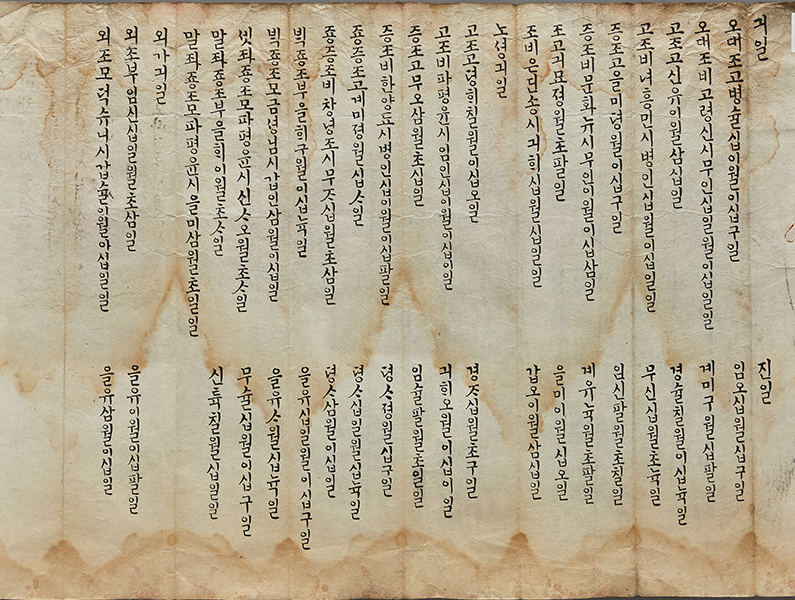 긔일 진일
오대조고병슐십이월이십구일 임오십월이십구일
오대조비고령신시무인십일월이십일일 계미구월십팔일
고조고신유이월삼십일 경슐칠월이십뉵일
고조비녀흥민시병인십월이십일일 무신십월초뉵일
증조고을미졍월이십구일 임신팔월초칠일
증조비문화뉴시무인이월이십삼일 계유뉵월초팔일
조고긔묘졍월초팔일 을미이월십오일
조비은딘송시긔희십월십일일 갑오이월삼십일
노셩긔일
고조고졍희칠월이십오일 경ᄌ십월초구일
고조비파평윤시임인십이월이십이일 긔희오월이십이일
증조고무오삼월초십일 임슐팔월초일일
증조비한양됴시병인십이월이십팔일 뎡ᄉ졍월십구일
죵증조고계미졍월십ᄉ일 뎡ᄉ십일월십뉵일
죵증조비창녕조시무ᄌ십월초삼일 뎡ᄉ삼월이십일
ᄇᆡᆨ죵조부을희구월이십뉵일 을유십일월이십구일
ᄇᆡᆨ죵조모금셩님시갑인삼월이십일 을유ᄉ월십뉵일
셋좌죵조모파평윤시신ᄉ오월초ᄉ일 무슐십월이십구일
말좌죵조부을희이월초ᄉ일 신튝칠월십일일
말좌죵조모파평윤시을미삼월초일일
외가긔일
외조부임신십일월초삼일 을유이월이십팔일
외조모덕슈니시갑슐이월이십일일 을유삼월이십일